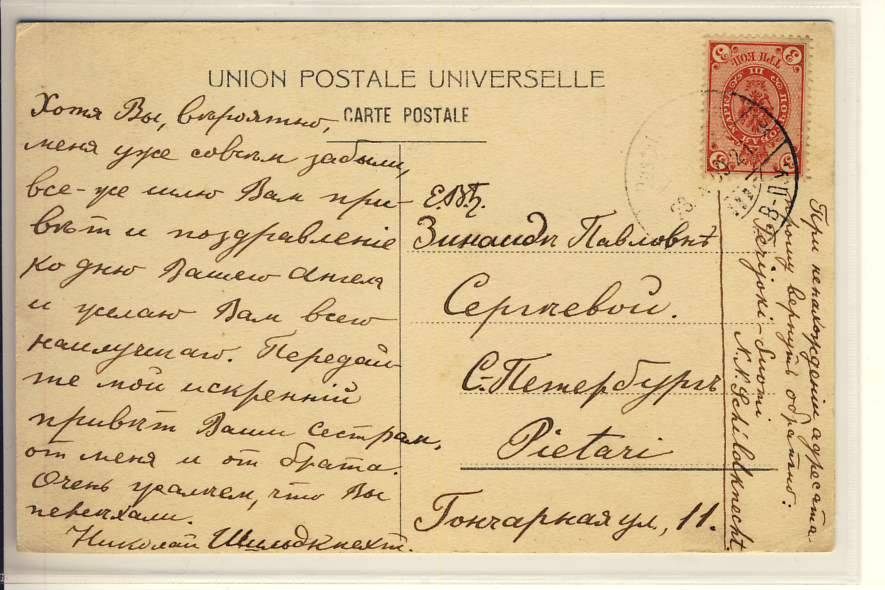 UNION POSTALE UNIVERSELLE
CARTE POSTALE
Хотя Вы, вѣроятно,
меня уже совсѣм забыли,
все-же шлю Вам при-
вѣт и поздравленіе
ко дню Вашего Ангела
и желаю Вам всего
наилучшаго. Передай-
те мой искренній
привѣт Вашим сестрам,
от меня и от брата.
Очень жалѣем, что Вы
переѣхали.
Николай Шильдкнехт.
Е.В.
Зинаидѣ Павловнѣ
Сергѣевой.
С-Петербургъ
Pietari
Гончарная ул, 11.
При ненахожденіи адресата
прошу вернуть обратно:
Terijoki - Suomi
N. N. Schildknecht
3
ТРИ КОП.